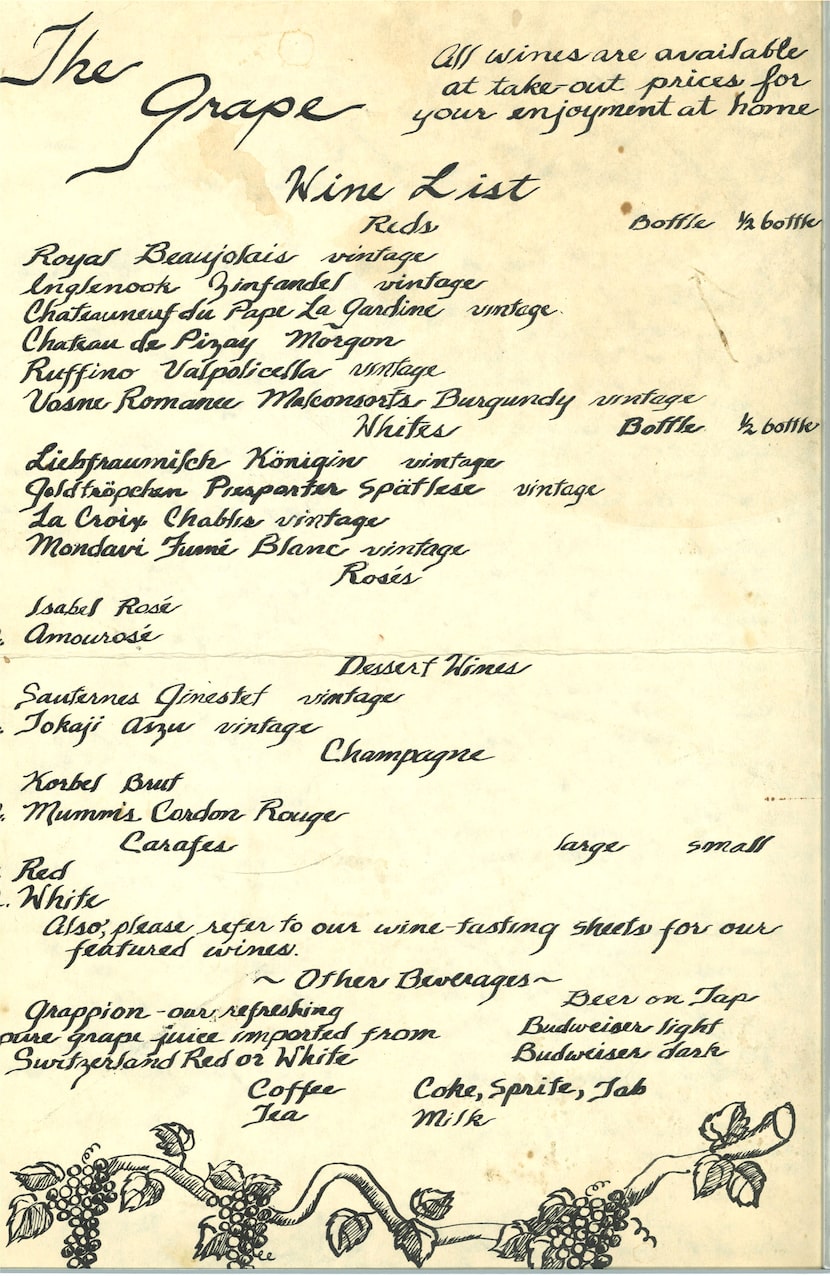 The
Grape
All wines are available
at take-out prices for
your enjoyment at home
Wine List
Reds Bottle ½ bottle
Royal Beaujolais vintage
Inglenook Zinfandel vintage
Chateauneuf du Pape La Gardine vintage
Chateau de Pizay Morgon
Ruffino Valpolicella vintage
Vosne Romanee Malconsorts Burgundy vintage
Whites Bottle ½ bottle
Liebfraumilch Königin vintage
Goldtröpchen Piesporter Spätlese vintage
La Croix Chablis vintage
Mondavi Fumé Blanc vintage
Rosés
Isabel Rosé
Amourosé
Dessert Wines
Sauternes Ginestet vintage
Tokaji Aszu vintage
Champagne
Korbel Brut
Mumm's Cordon Rouge
Carafes large small
Red
White
Also, please refer to our wine-tasting sheets for our
featured wines.
~ Other Beverages ~
Grappion - our refreshing
pure grape juice imported from
Switzerland Red or White
Beer on Tap
Budweiser light
Budweiser dark
Coffee Coke, Sprite, Tab
Tea Milk